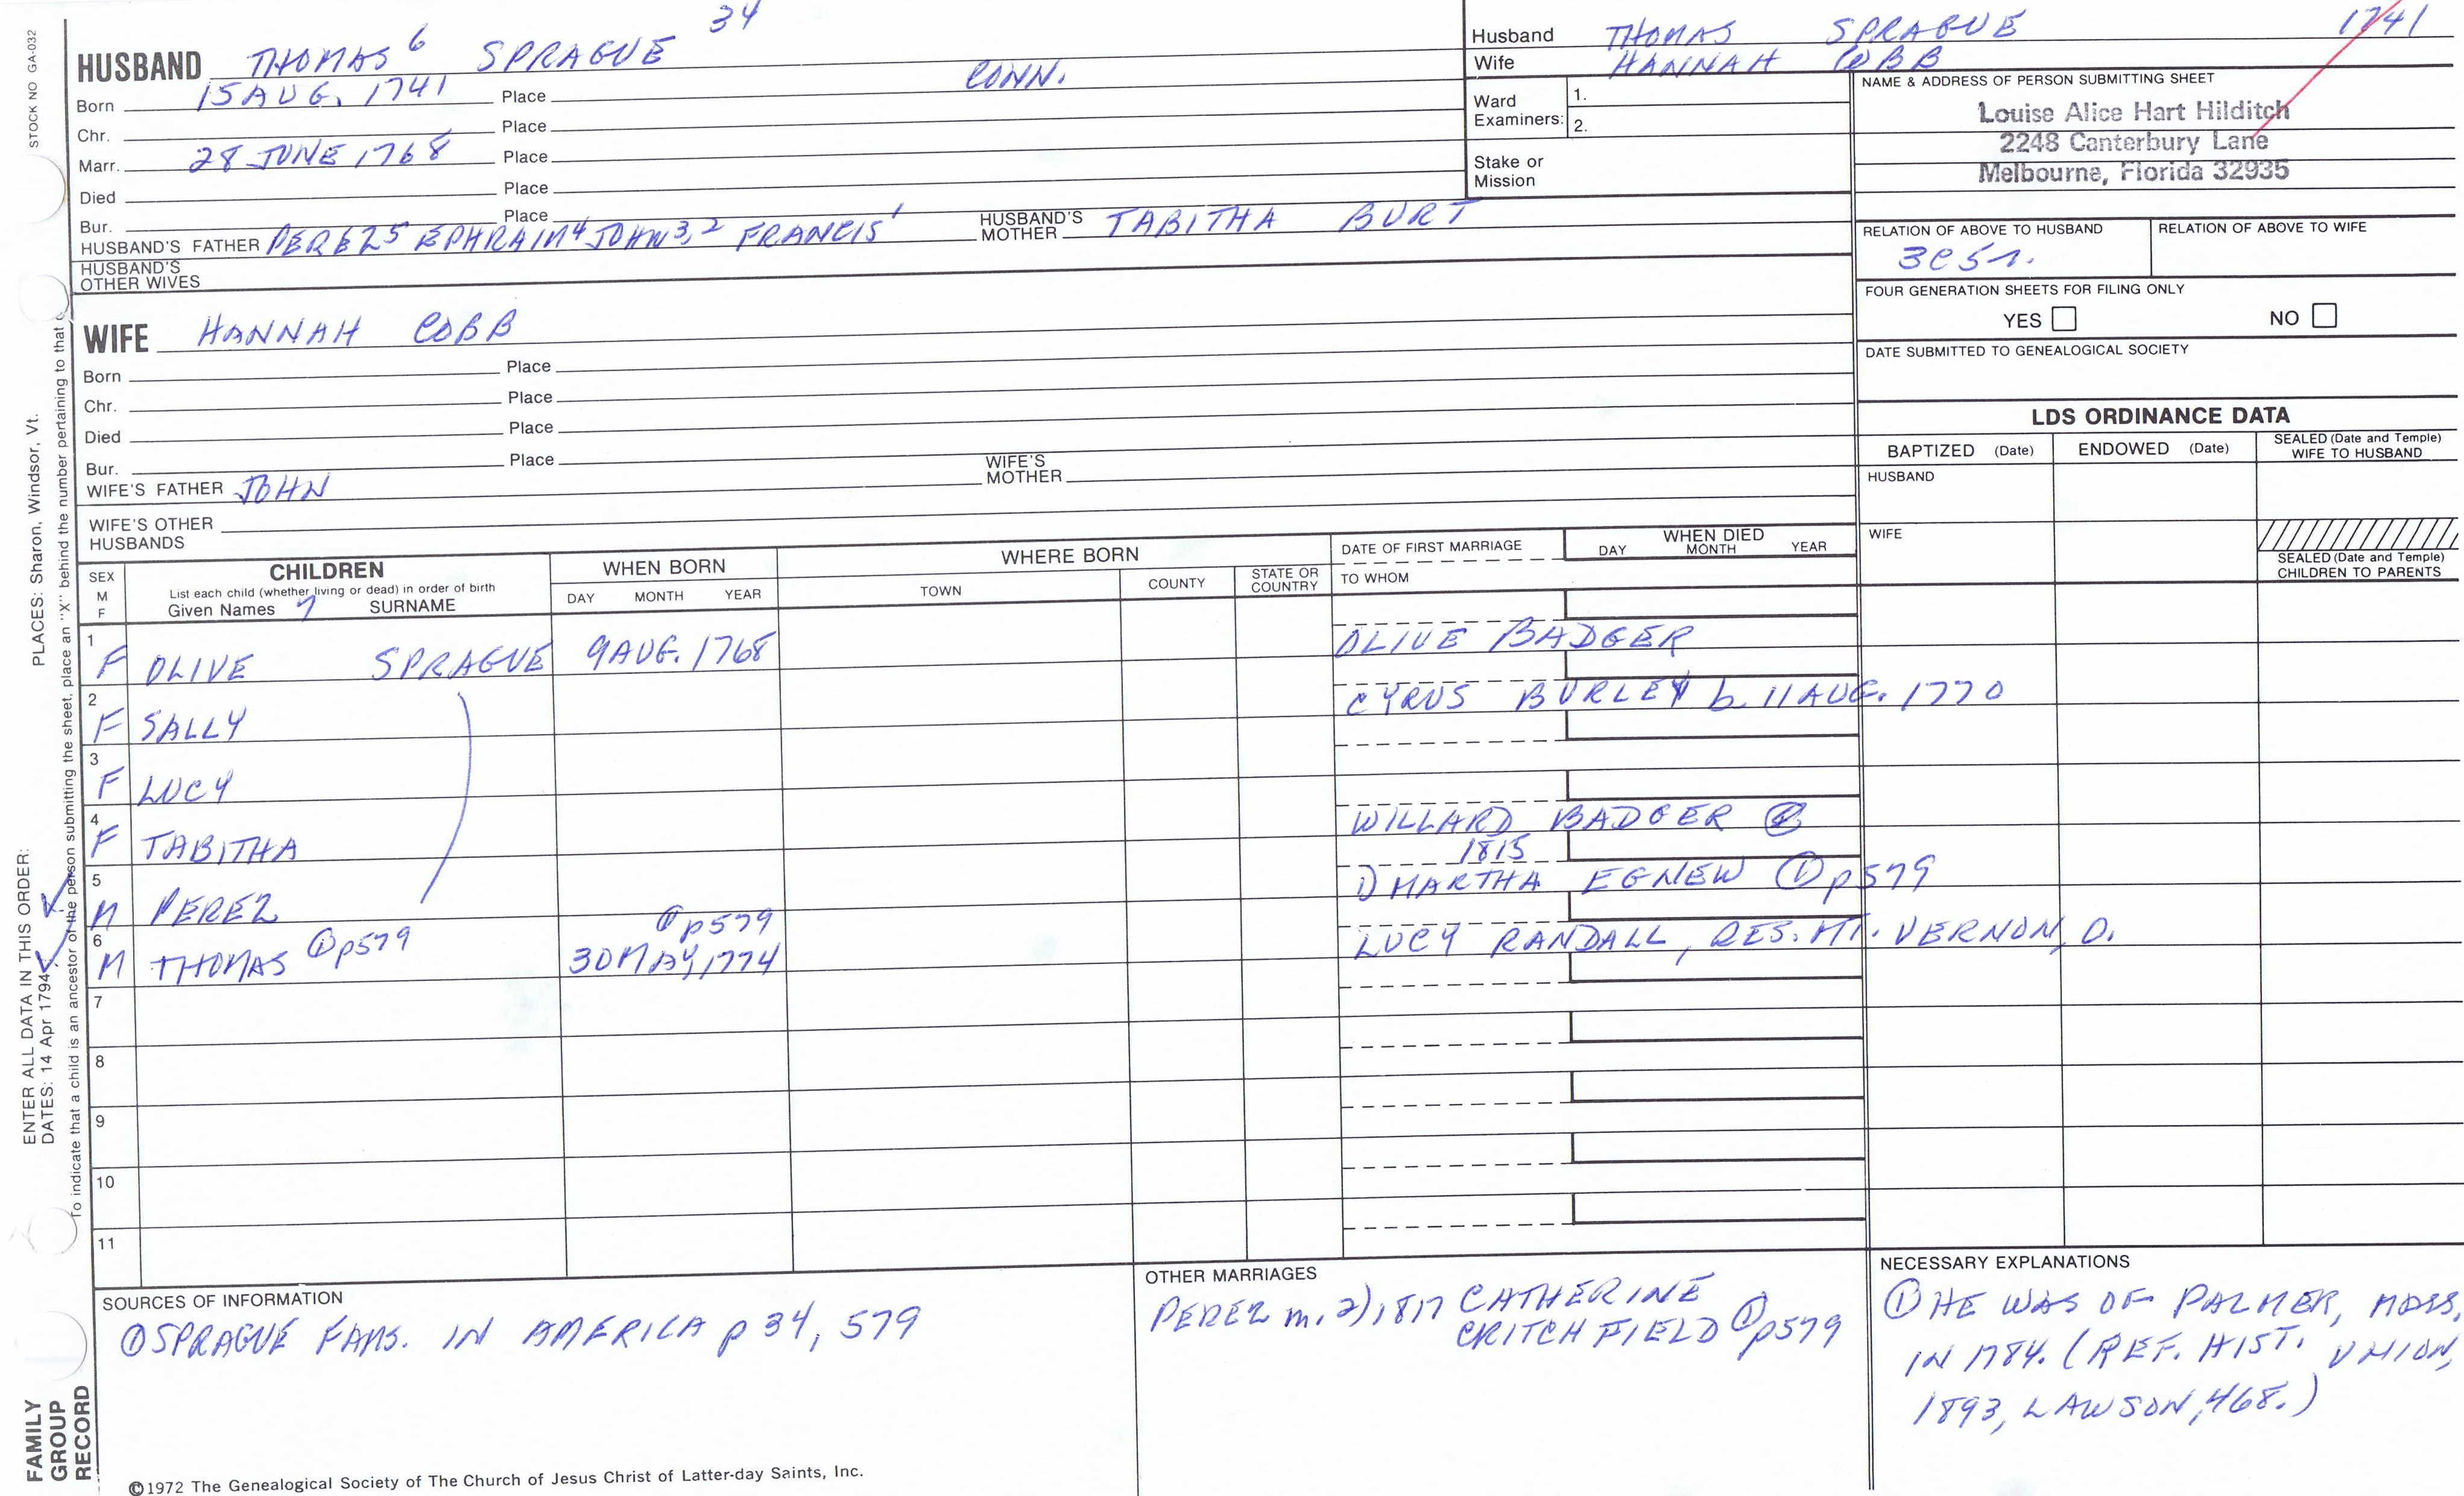 STOCK NO GA-032
34
HUSBAND THOMAS 6 SPRAGUE
Born 15 AUG. 1741 Place CONN.
Chr. Place
Marr. 28 JUNE 1768 Place
Died Place
Bur. Place
HUSBAND'S FATHER PEREZ 5 EPHRAIM 4 JOHN 3,2 FRANCIS 1 HUSBAND'S MOTHER TABITHA BURT
HUSBAND'S OTHER WIVES
Husband THOMAS SPRAGUE 1741
Wife HANNAH COBB
Ward Examiners: 1.
2.
Stake or Mission
NAME & ADDRESS OF PERSON SUBMITTING SHEET
Louise Alice Hart Hilditch
2248 Canterbury Lane
Melbourne, Florida 32935
RELATION OF ABOVE TO HUSBAND RELATION OF ABOVE TO WIFE
FOUR GENERATION SHEETS FOR FILING ONLY
YES NO
DATE SUBMITTED TO GENEALOGICAL SOCIETY
WIFE HANNAH COBB
Born Place
Chr. Place
Died Place
Bur. Place
WIFE'S FATHER JOHN WIFE'S MOTHER
WIFE'S OTHER HUSBANDS
LDS ORDINANCE DATA
BAPTIZED (Date) ENDOWED (Date) SEALED (Date and Temple) WIFE TO HUSBAND
HUSBAND
WIFE
SEALED (Date and Temple) CHILDREN TO PARENTS
SEX M F
CHILDREN
List each child (whether living or dead) in order of birth
Given Names 7 SURNAME
WHEN BORN
DAY MONTH YEAR
WHERE BORN
TOWN COUNTY STATE OR COUNTRY
DATE OF FIRST MARRIAGE
TO WHOM
WHEN DIED
DAY MONTH YEAR
1 F OLIVE SPRAGUE 9 AUG. 1768 OLIVE BADGER
2 F SALLY CYRUS BURLEY b. 11 AUG. 1770
3 F LUCY
4 F TABITHA WILLARD BADGER
1815
5 M PEREZ 1) MARTHA EGNEW ① p579
6 M THOMAS ① p579 ① p579 30 MAY, 1774 LUCY RANDALL, RES. MT. VERNON, O.
7
8
9
10
11
SOURCES OF INFORMATION
① SPRAGUE FAMS. IN AMERICA p 34, 579
OTHER MARRIAGES
PEREZ m. 2) 1817 CATHERINE
CRITCHFIELD ① p579
NECESSARY EXPLANATIONS
① HE WAS OF PALMER, MASS,
IN 1784. (REF. HIST. UNION,
1893, LAWSON, 468.)
©1972 The Genealogical Society of The Church of Jesus Christ of Latter-day Saints, Inc.
FAMILY
GROUP
RECORD
ENTER ALL DATA IN THIS ORDER:
PLACES: Sharon, Windsor, Vt.
DATES: 14 Apr 1794
To indicate that a child is an ancestor of the person submitting the sheet, place an "X" behind the number pertaining to that